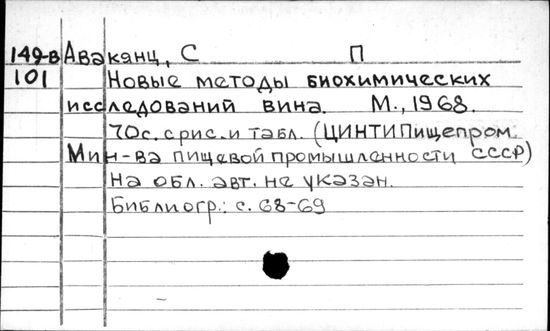 149-в Авакянц, С П
101 Новые методы биохимических
исследований вина. М., 1968.
70с. с рис. и табл. (ЦИНТИПищепром.
Мин-ва пищевой промышленности СССР)
На обл. авт. не указан.
Библиогр.: с. 68-69